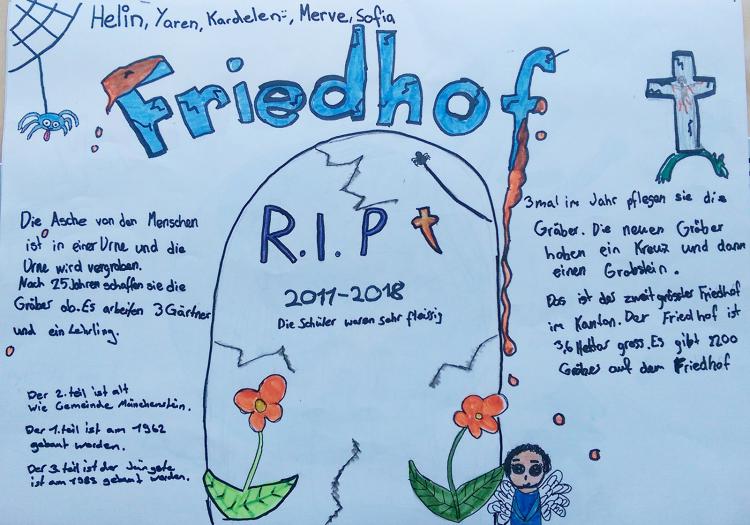 Helin, Yaren, Kardelen, Merve, Sofia
Friedhof
Die Asche von den Menschen
ist in einer Urne und die
Urne wird vergraben.
Nach 25 Jahren schaffen sie die
Gräber ab. Es arbeiten 3 Gärtner
und ein Lehrling.
Der 2. teil ist alt
wie Gemeinde Münchenstein.
Der 1. teil ist am 1962
gebaut worden.
Der 3. teil ist der Jüngste
ist am 1983 gebaut worden.
R.I.P
2011-2018
Die Schüler waren sehr fleissig
3 mal im Jahr pflegen sie die
Gräber. Die neuen Gräber
haben ein Kreuz und dann
einen Grabstein.
Das ist das zweitgrösster Friedhof
im Kanton. Der Friedhof ist
3,6 Hektar gross. Es gibt
Gräber auf dem Friedhof